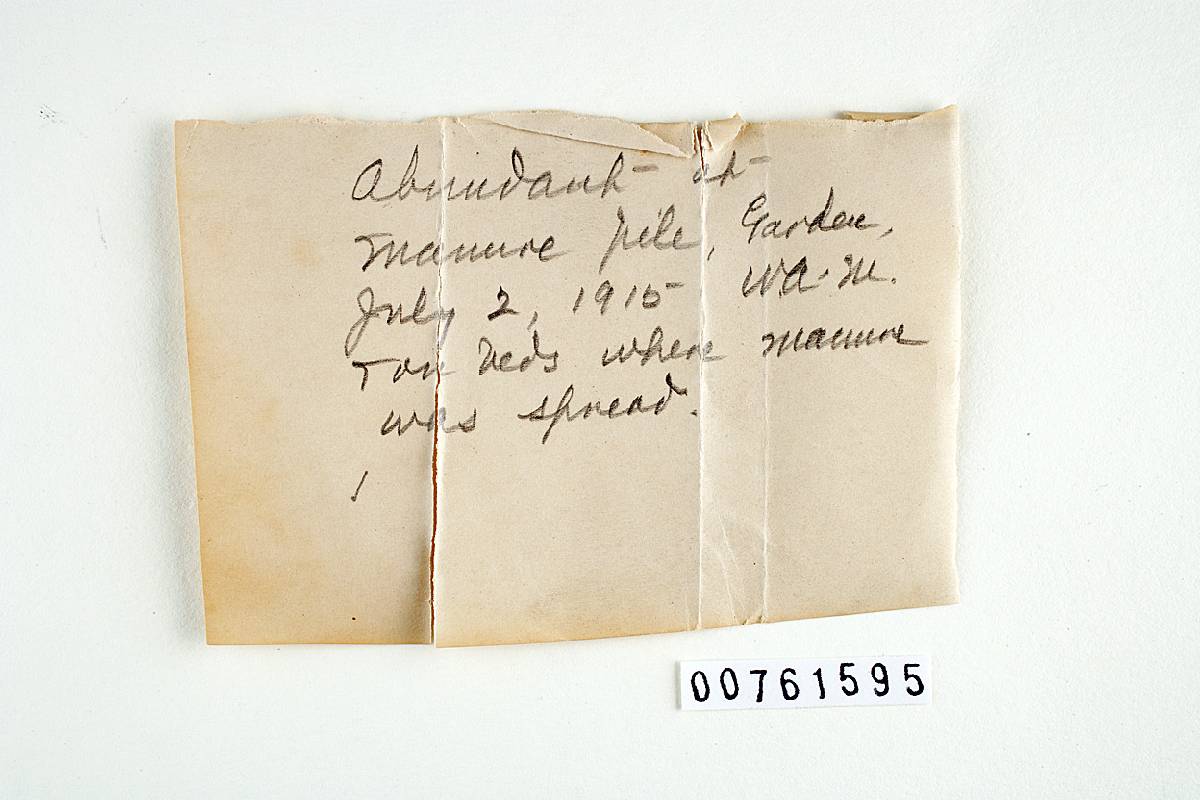 Abundant at
manure pile, Garden,
July 2, 1915 WA. M.
+ on beds where manure
was spread.
/
00761595